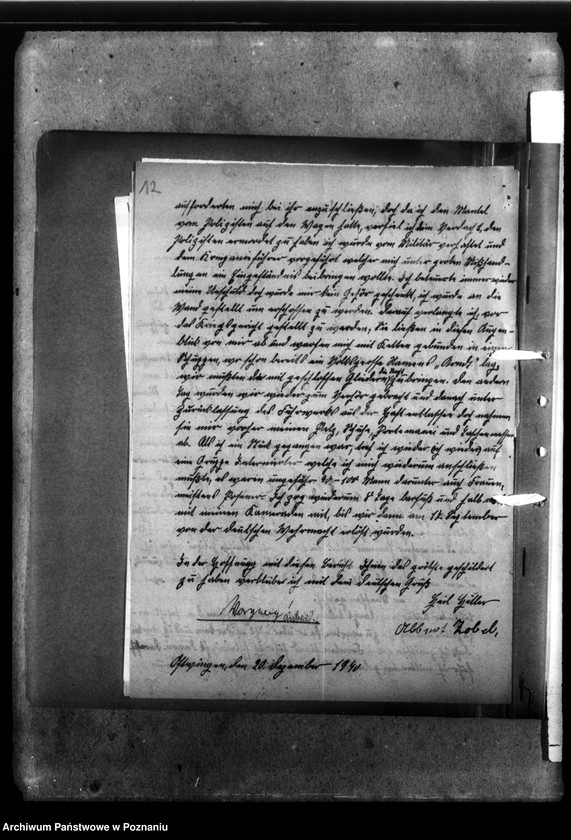 12
aufforderten mich bei ihr anzuschließen, doch da ich den Mantel
vom Polizisten auf den Wagen hatte, verfiel ich dem Verdacht, den
Polizisten ermordet zu haben ich wurde vom Militär verhaftet und
dem Kompanieführer vorgeführt welcher mir unter groben Mißhand-
lungen ein Eingeständnis beibringen wollte. Ich beteuerte immer wieder
meine Unschuld doch wurde mir kein Gehör geschenkt, ich wurde an die
Wand gestellt um erschossen zu werden. Darauf verlangte ich, vor
das Kriegsgericht gestellt zu werden, sie ließen in diesen Augen-
blick von mir ab und warfen mich mit Ketten gebunden in einen
Schuppen, wo schon bereits ein Volksgenosse Namens lag
wir mußten da mit geschlossen Gliedern die Nacht zubringen. Den andern
Tag wurden wir wieder zum Verhör gebracht und danach unter
Zurücklassung des Fuhrwerks aus der Haft entlassen doch nahmen
sie mir vorher meinen Pelz, Schuhe, Portemonnaie und Taschenmesser
ab. Als ich ein Stück gegangen war, traf ich wieder auf
eine Gruppe Internierter welche ich mich wiederum anschließen
mußte, es waren ungefähr 80-100 Mann darunter auch Frauen,
meistens Posener. Ich zog wiederum 8 Tage barfuß und halb
mit meinen Kameraden mit, bis wir dann am 17. September
von der deutschen Wehrmacht erlöst wurden.
In der Hoffnung mit diesen Bericht Ihnen das größte geschildert
zu haben verbleibe ich mit dem deutschen Gruß
Heil Hitler
Zobel,
den 20. Dezember 1940
Archiwum Państwowe w Poznaniu